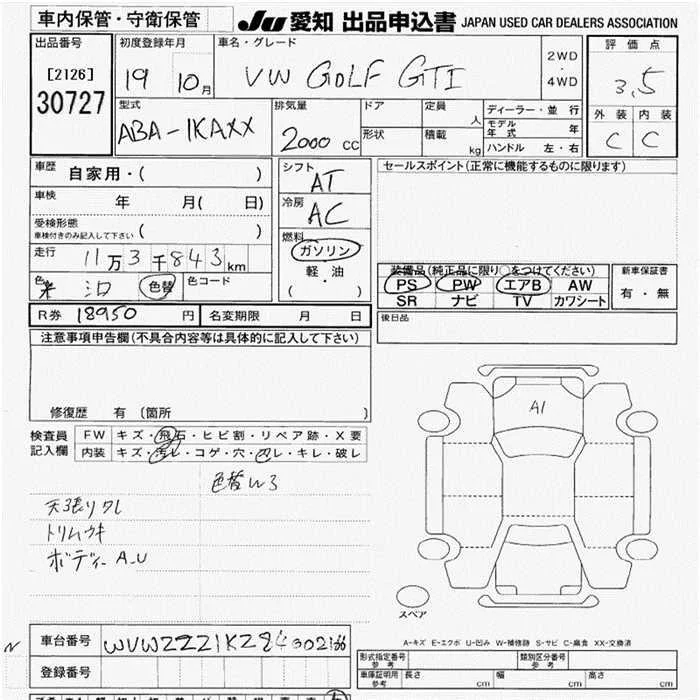 車内保管・守衛保管
JU 愛知 出品申込書 JAPAN USED CAR DEALERS ASSOCIATION
出品番号
[2126]
30727
初度登録年月
19 10月
車名・グレード
VW GOLF GTI
2WD
・
4WD
評価点
3.5
外装 内装
C C
型式
ABA-1KAXX
排気量
2000 cc
ドア
形状
定員
人
積載
kg
ディーラー・並行
モデル年式 年
ハンドル 左・右
車歴
自家用・( )
車検
年 月( 日)
受検形態
車検付きのみ記入して下さい ( )
走行
11万3千843km
色
色替
色コード
シフト
AT
冷房
AC
燃料
ガソリン
軽・油
( )
セールスポイント(正常に機能するものに限ります)
装備品(純正品に限り○をつけてください)
PS PW エアB AW
SR ナビ TV カワシート
新車保証書
有・無
R券 18950 円
名変期限 月 日
後日品
注意事項申告欄(不具合内容等は具体的に記入して下さい)
修復歴 有〔箇所 〕
検査員
記入欄
FW キズ・飛石・ヒビ割・リペア跡・X要
内装 キズ・汚レ・コゲ・穴・スレ・キレ・破レ
色替W3
天張りクレ
トリムウキ
ボディーA.U
A1
スペア
A-キズ E-エクボ U-凹み W-補修跡 S-サビ C-腐食 XX-交換済
車台番号
WVWZZZ1KZ84302166
登録番号
形式指定番号
参考
類別区分番号
参考
車庫証明用
参考
長さ cm
幅 cm
高さ cm